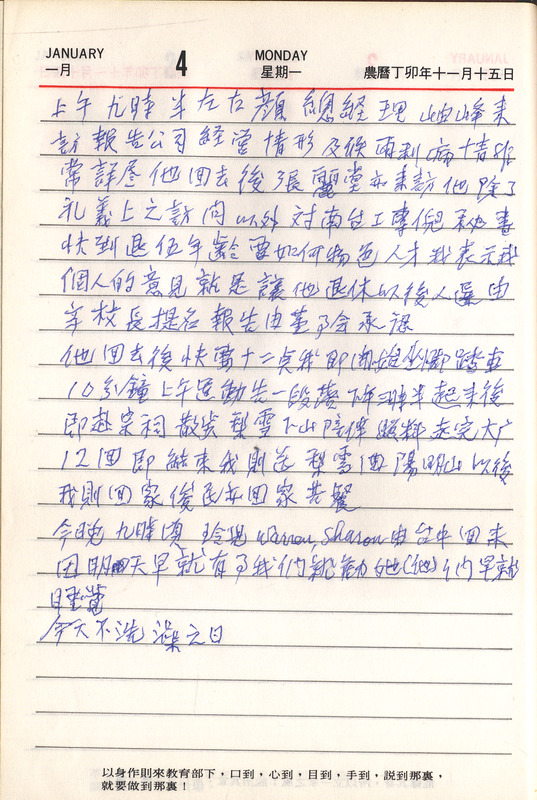 JANUARY
一月
4
MONDAY
星期一
農曆丁卯年十一月十五日
上午九時半左右顏總經理岫峰來
訪報告公司經營情形及候雨利病情非
常詳盡他回去後張麗堂亦來訪他除了
礼義上之訪問以外対南台工專倪秘書
快到退伍年齡要如何物色人才我表示我
個人的意見就是讓他退休以後人選由
辛校長提名報告由董事会承認
他回去後快要十二点我即開始坐腳踏車
10分鐘上午運動告一段落下午三時半起來後
即赴宗祠散步梨雪下山陪伴照料走完大广
12回即結束我則送梨雪回陽明山以後
我則回家俊民亦回家共餐
今晚九時頃玲瑰Warren, Sharon由台中回來
因明天早就有事我們就勸她(他)们早就
睡覺
今天不洗澡之日
以身作則來教育部下,口到,心到,目到,手到,説到那裏,
就要做到那裏!